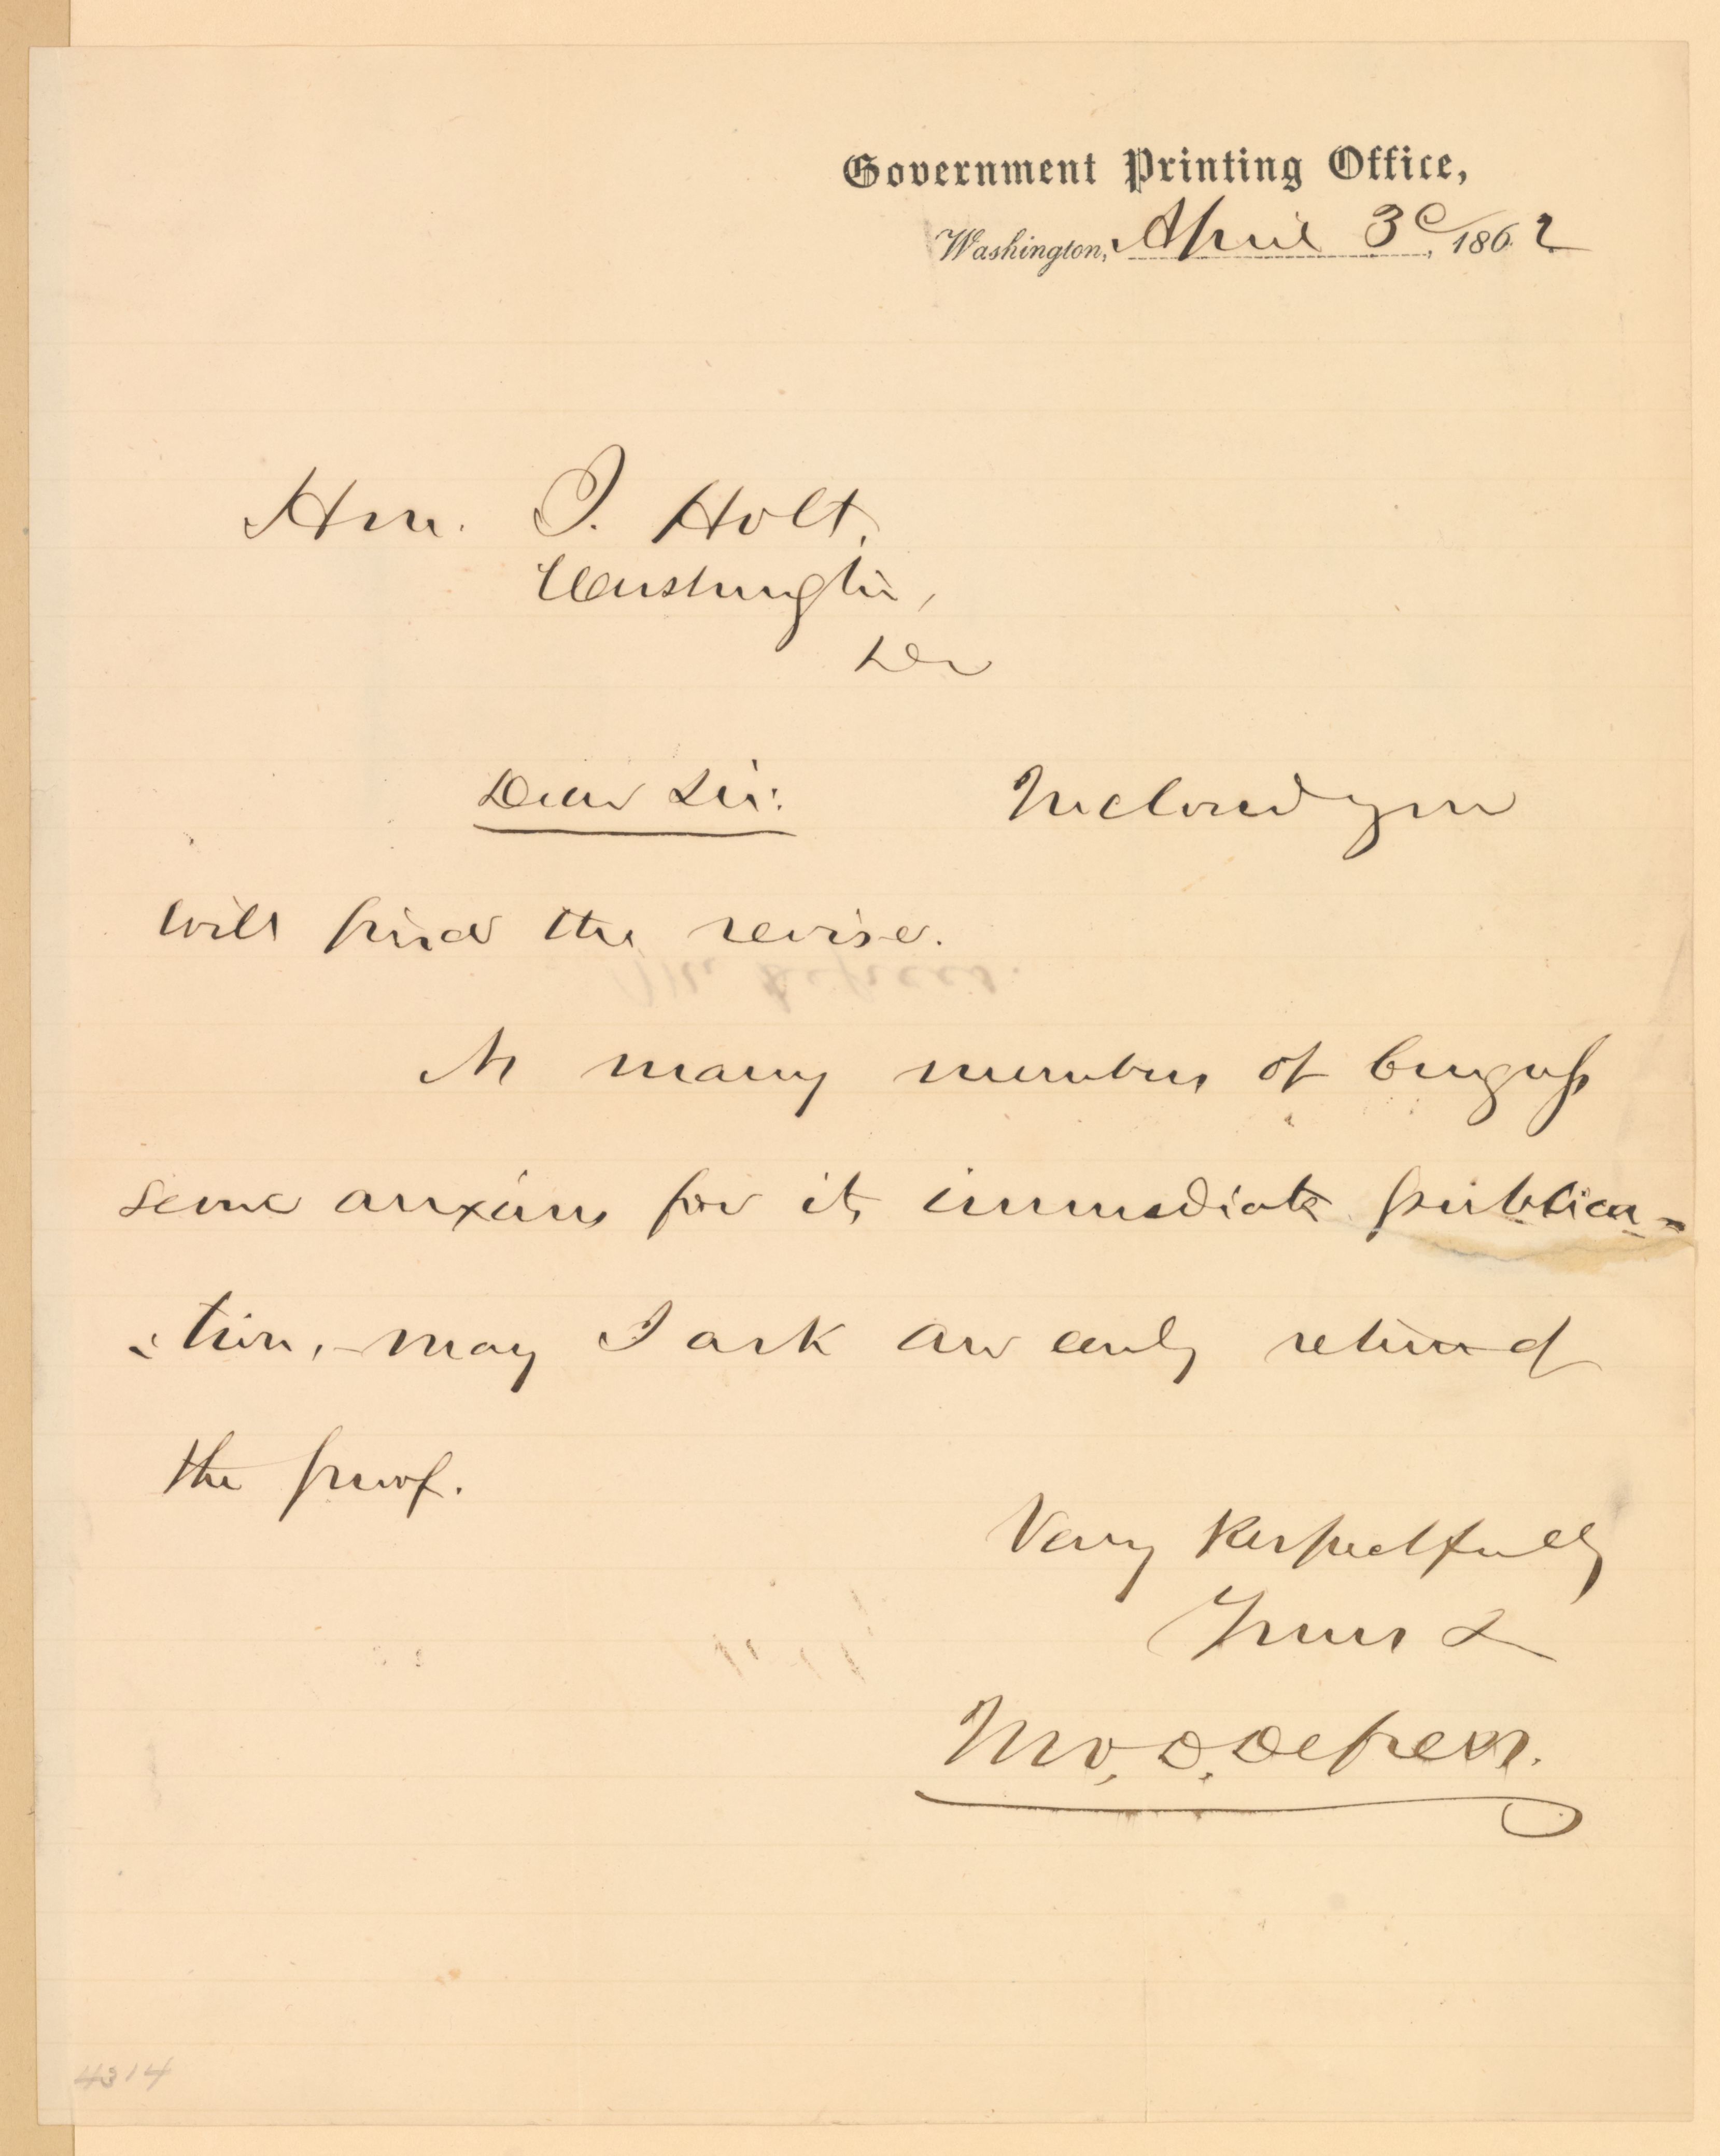 Government Printing Office,
Washington, April 3d, 1862
Hon. J. Holt,
Washington,
DC
Dear Sir: Inclosed you
will find the revise.
As many members of Congress
seem anxious for its immediate publica-
-tion, may I ask an early return of
the proof.
Very Respectfully
Yours &
Jno. D. Defrees.
4314